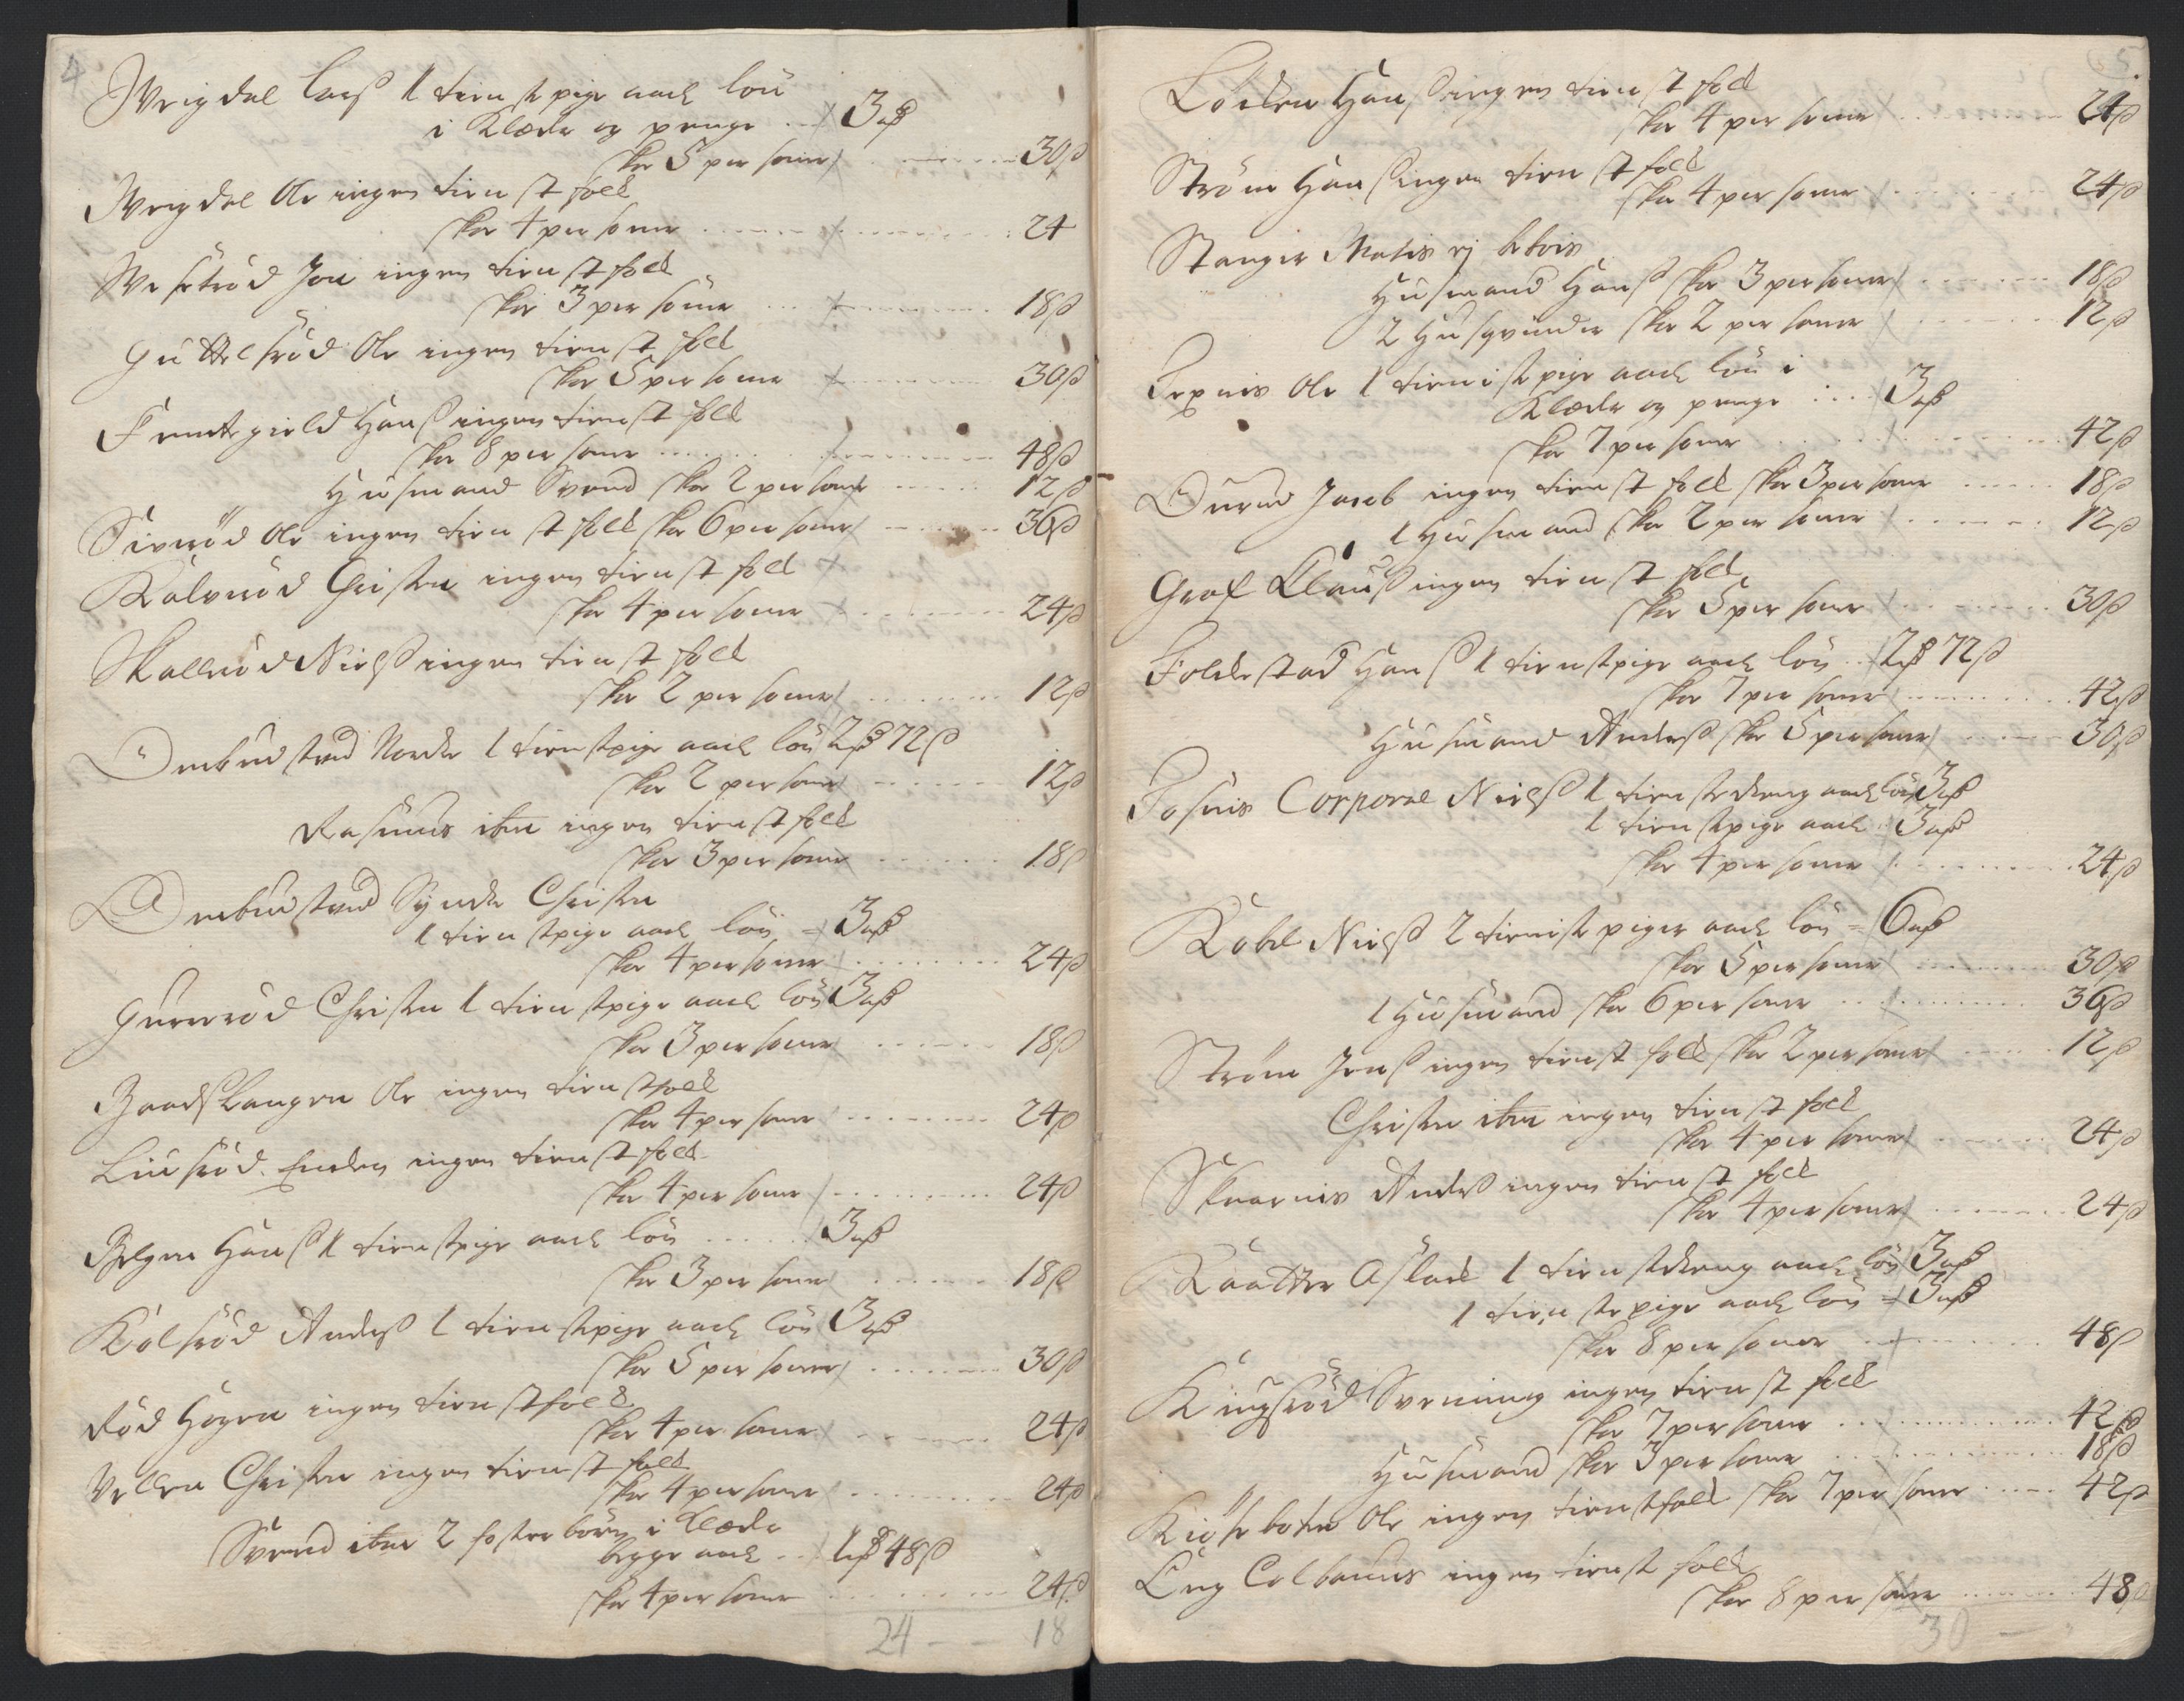 4
Wrigdal Larß 1 tienste pige aarl lön
i Klæde og penge .. 3 rß
skoe 5 personer 30 ß
Wrigdal Ole ingen tienst folck
skoe 4 personer 24
Wesetröd Jon ingen tienst folck
skoe 3 personer 18 ß
Guttelsröd Ole ingen tienst folck
skoe 5 personer 30 ß
Femtegield Hanß ingen tienst folck
skoe 8 personer 48 ß
Husmand Svend skoe 2 personer 12 ß
Siveröd Ole ingen tienst folck skoe 6 personer 36 ß
Kalveröd Christen ingen tienst folck
skoe 4 personer 24 ß
Skalleröd Nielß ingen tienst folck
skoe 2 personer 12 ß
Ombudstved Nordre 1 tienstpige aarl lön 2 rß 72 ß
skoe 2 personer 12 ß
Rasmus ibm ingen tienst folck
skoe 3 personer 18 ß
Ombudstved Syndre Christen
1 tienstpige aarl lön 3 rß
skoe 4 personer 24 ß
Gurreröd Christen 1 tienstpige aarl lön 3 rß
skoe 3 personer 18 ß
Baadslangen Ole ingen tienstfolck
skoe 4 personer 24 ß
Liusröd Enken ingen tienst folck
skoe 4 personer 24 ß
Bolgen Hanß 1 tienstpige aarl lön 3 rß
skoe 3 personer 18 ß
Kolsröd Anderß 1 tienstpige aarl lön 3 rß
skoe 5 personer 30 ß
Röd Hogen ingen tienstfolck
skoe 4 personer 24 ß
Vellen Christen ingen tienst folck
skoe 4 personer 24 ß
Svend ibm 2 foster börn i Klæde
begge aarl .. 1 rß 48 ß
skoe 4 personer 24 ß
24 - - 18
5
Löcken Hanß ingen tienst folck
skoe 4 personer 24 ß
Ström Hanß ingen tienst folck
skoe 4 personer 24 ß
Stanger Matis ej beboes
Husmand Hanß skoe 3 personer 18 ß
2 Husqvinder skoe 2 personer 12 ß
Texnes Ole 1 tieniste pige aarl lön i
Klæde og penge 3 rß
skoe 7 personer 42 ß
Jacob ingen tienst folck skoe 3 personer 18 ß
1 Husmand skoe 2 personer 12 ß
Graf Clauß ingen tienst folck
skoe 5 personer 30 ß
Folckestad Hanß 1 tienstpige aarl lön 2 rß 72 ß
skoe 7 personer 42 ß
Husmand Anderß skoe 5 personer 30 ß
Tosnes Corporal Nielß 1 tienste dreng aarl lön 3 rß
1 tienstpige aarl 3 rß
skoe 4 personer 24 ß
Kabel Nielß 2 tieniste piger aarl lön 6 rß
skoe 5 personer 30 ß
1 Husmand skoe 6 personer 36 ß
Ström Jenß ingen tienst folck skoe 2 personer 12 ß
Christen ibm ingen tienst folck
skoe 4 personer 24 ß
Skuarnes Anderß ingen tienst folck
skoe 4 personer 24 ß
Kaatter Aslack 1 tienstdreng aarl lön 3 rß
1 tienste pige aarl lön 3 rß
skoe 8 personer 48 ß
Kingsröd Svenning ingen tienst folck
skoe 7 personer 42 ß
Husmand skoe 3 personer 18 ß
Kiöseboten Ole ingen tienstfolck skoe 7 personer 42 ß
Eng Colbanus ingen tienst folck
skoe 8 personer 48 ß
30 -